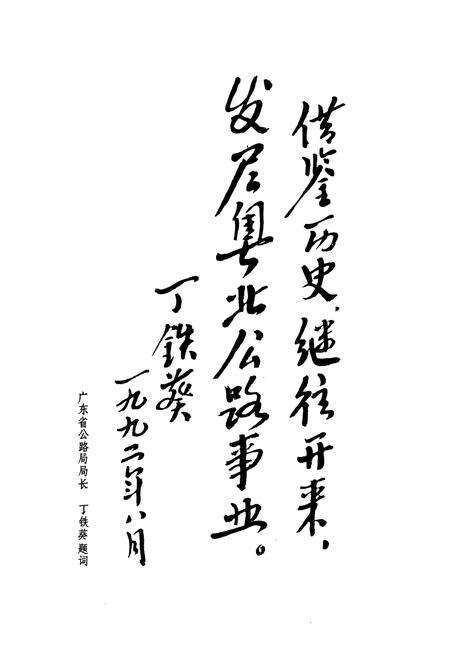 借鉴历史,继往开来,
发展粤北公路事业。
丁铁葵
一九九二年八月
广东省公路局局长 丁铁葵题词